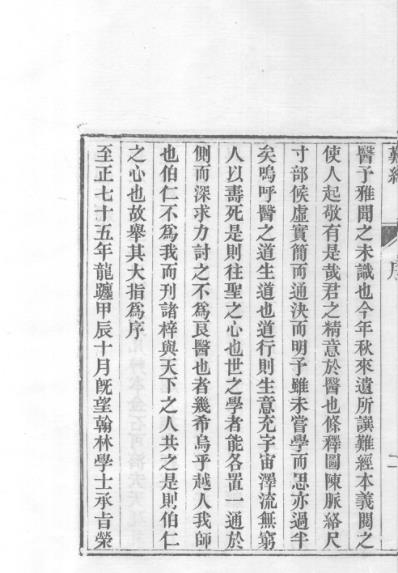 難經
序
二
醫予雅聞之未識也今年秋來遺所譔難經本義閱之
使人起敬有是哉君之精意於醫也條釋圖陳脈絡尺
寸部候虛實簡而通決而明予雖未嘗學而思亦過半
矣嗚呼醫之道生道也道行則生意充宇宙澤流無窮
人以壽死是則往聖之心也世之學者能各置一通於
側而深求力討之不為良醫也者幾希烏乎越人我師
也伯仁不為我而刊諸梓與天下之人共之是則伯仁
之心也故舉其大指為序
至正七十五年龍躔甲辰十月旣望翰林學士承旨榮